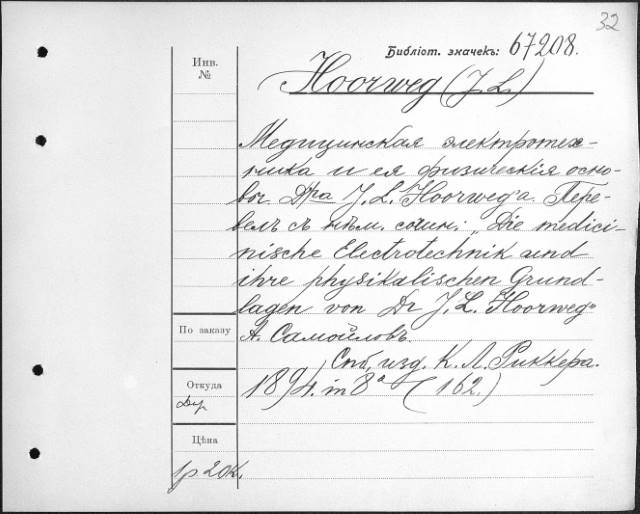 32
Библіот. значекъ: 67208.
Инв.
№
Hoorweg (J. L.)
Медицинская электротех-
ника и ея физическія осно-
вы. Д-ра J. L. Hoorweg'a. Пере-
велъ съ нѣм. сочин.: „Die medici-
nische Electrotechnik und
ihre physikalischen Grund-
lagen von Dr J. L. Hoorweg"
По заказу
А. Самойловъ.
Спб., изд. К. Л. Риккера.
Откуда
1894. in 8° (162.)
Цѣна
1р. 20к.